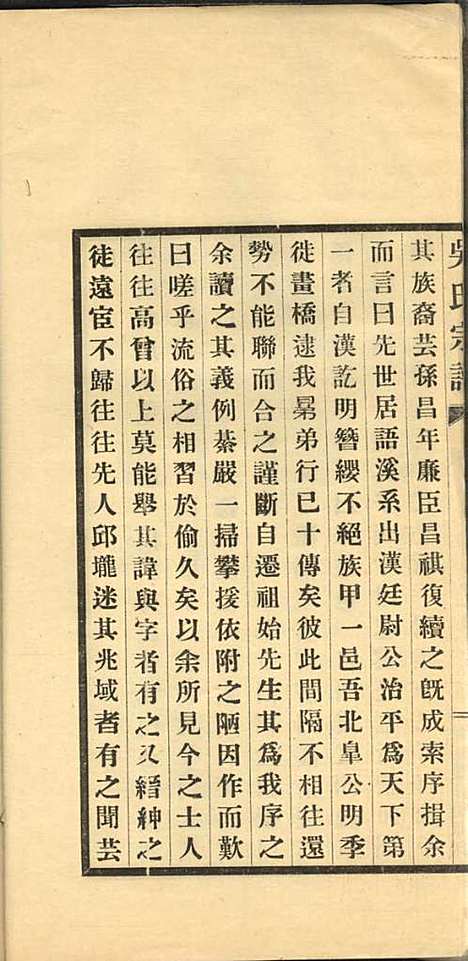 吳氏宗譜
其族裔芸孫昌年廉臣昌祺復續之旣成索序揖余
而言曰先世居語溪系出漢廷尉公治平爲天下第
一者自漢訖明簪纓不絕族甲一邑吾北臯公明季
徙畫橋逮我晜弟行已十傳矣彼此間隔不相往還
勢不能聯而合之謹斷自遷祖始先生其爲我序之
余讀之其義例綦嚴一掃攀援依附之陋因作而歎
曰嗟乎流俗之相習於偷久矣以余所見今之士人
往往高曾以上莫能舉其諱與字者有之又縉紳之
徒遠宦不歸往往先人邱壠迷其兆域者有之聞芸